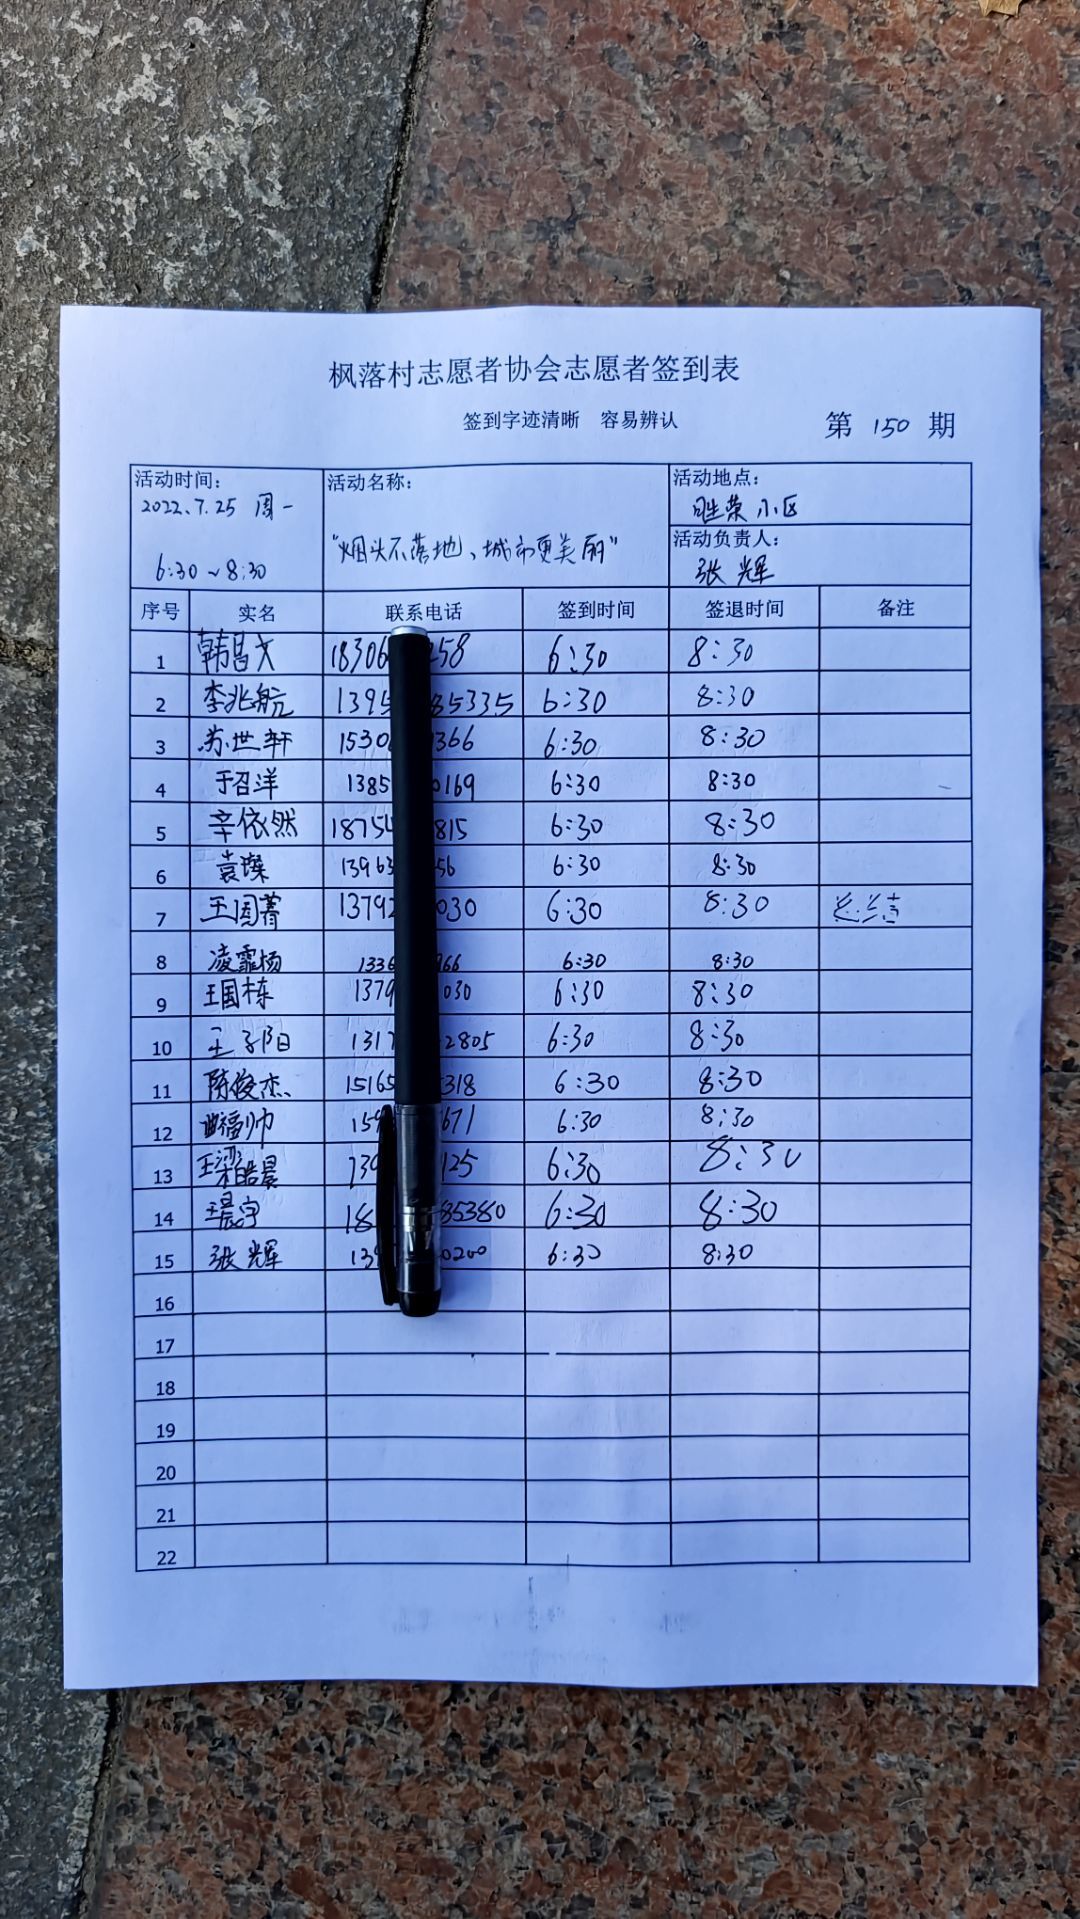 枫落村志愿者协会志愿者签到表
签到字迹清晰 容易辨认
第 150 期
活动时间: 活动名称: 活动地点:
2022.7.25 周一 荣小区
"烟头不落地、城市更美丽" 活动负责人:
6:30~8:30 张辉
序号 实名 联系电话 签到时间 签退时间 备注
1 韩昌文 18306 258 6:30 8:30
2 李兆航 1395 85335 6:30 8:30
3 苏世轩 1530 366 6:30 8:30
4 于召洋 1385 0169 6:30 8:30
5 辛依然 18754 815 6:30 8:30
6 袁璨 13963 56 6:30 8:30
7 王国菁 13792 030 6:30 8:30 总结
8 凌霏杨 1336 966 6:30 8:30
9 王国栋 1379 030 6:30 8:30
10 王子阳 1317 2805 6:30 8:30
11 陈俊杰 15165 318 6:30 8:30
12 曲福帅 159 671 6:30 8:30
13 王梁皓晨 139 125 6:30 8:30
14 王晨宇 18 85380 6:30 8:30
15 张辉 139 0200 6:30 8:30
16
17
18
19
20
21
22